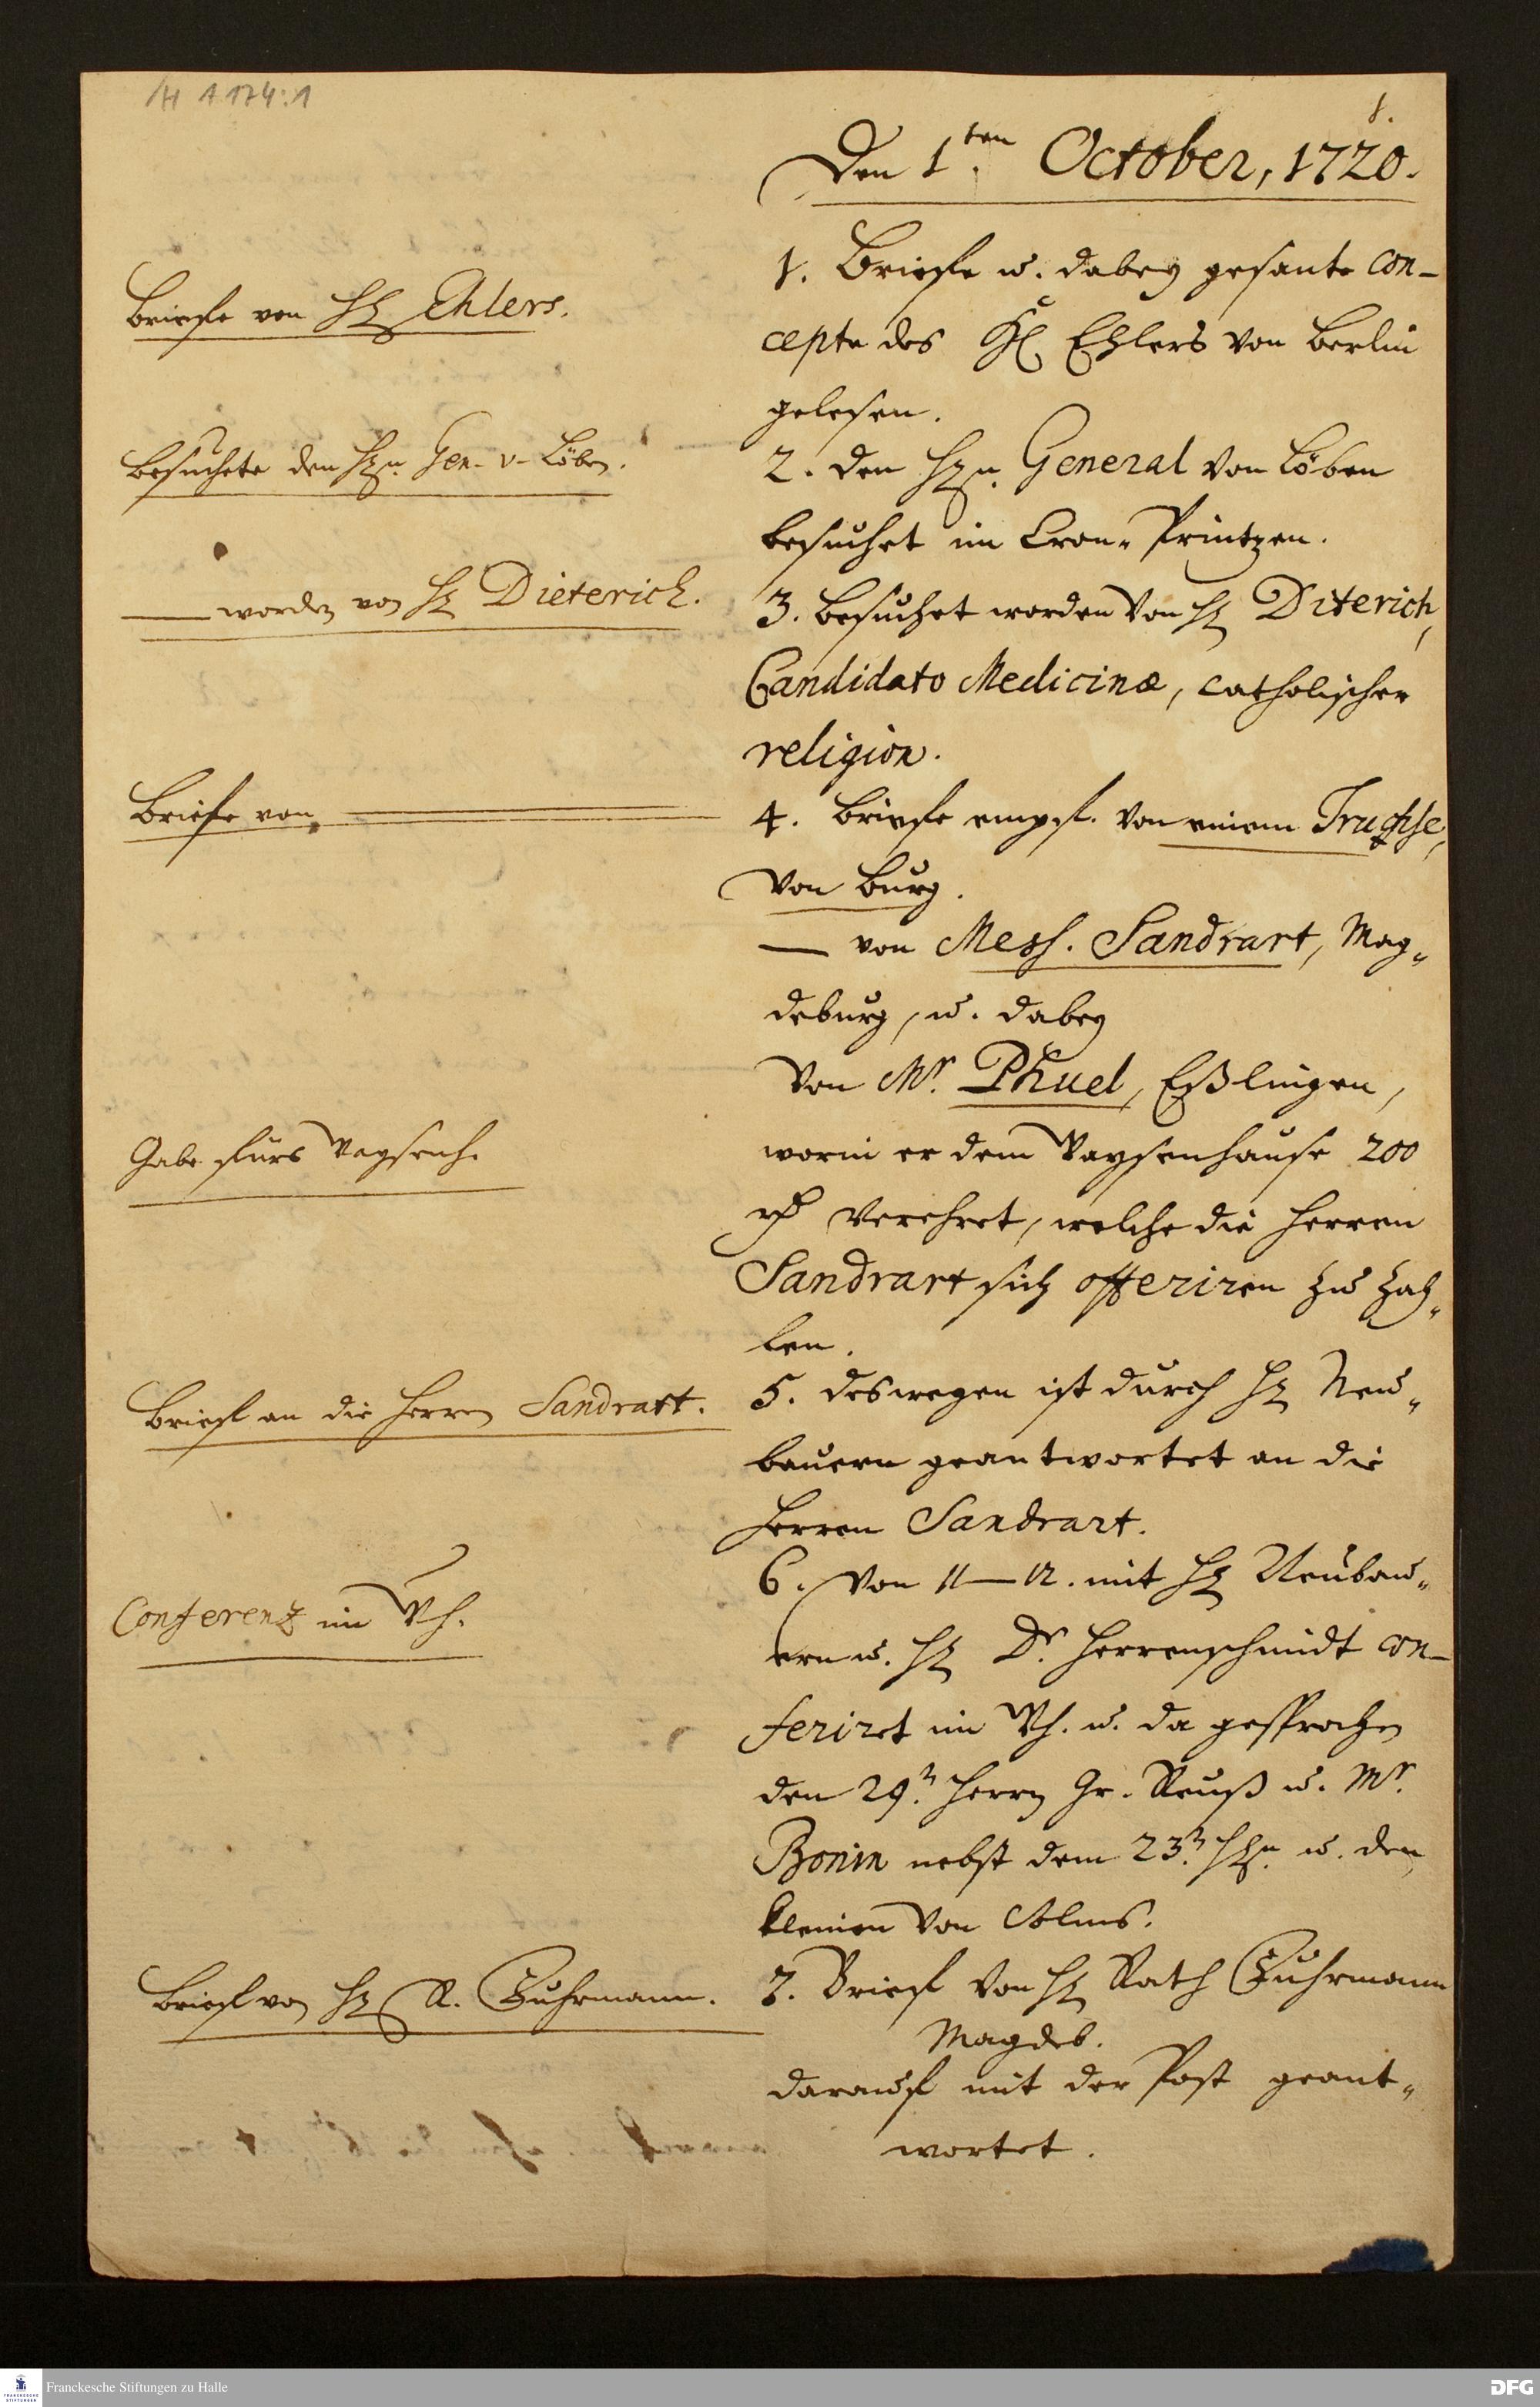 /H A 174:1
1.
Den 1.ten October, 1720.
1. Briefe u. dabey gesante Con-
Briefe von H. Ehlers.
cepte des H. Ehlers von Berlin
gelesen.
Besuchete den Hrn. Gen. v. Löben.
2. den Hrn. General von Löben
besuchet im Cron-Printzen.
— worden von H. Dieterich.
3. besuchet worden von H. Diterich,
Candidato Medicinæ, catholischer
religion.
Briefe von
4. Briefe empf. von einem Truchse,
von Burg.
— von Mess. Sandrart, Mag-
deburg, u. dabey
von Mr. Phuel, Eßlingen,
Gabe fürs Waysenh.
worin er dem Waysenhause 200
rh verehret, welche die Herren
Sandrart sich offeriren zu zah-
len.
Brief an die Herren Sandrart.
5. deswegen ist durch H. Neu-
bauern geantwortet an die
Herren Sandrart.
6. von 11—12. mit H. Neubau-
Conferenz im Wh.
ern u. H. Dr. Herrenschmidt con-
feriret im Wh. u. da gesprochen
den 29.n Herrn Gr. Reuß u. Mr.
Bonin nebst dem 23.n Hrn. u. den
kleinen von Solms.
Brief von H. R. Fuhrmann.
7. Brief von H. Rath Fuhrmann
Magdeb.
darauf mit der Post geant-
wortet.
Franckesche Stiftungen zu Halle
DFG